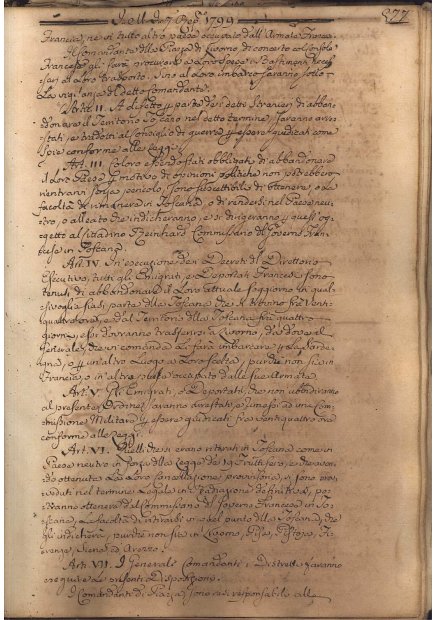 1799
377
Francia, ne in tutto altro paese occupato dall'Armata Francese
Il Comandante della Piazza di Livorno di concerto col Console
Francese al farà procurare a Loro Spese i Bastimenti neces
sari al Loro trasporto. Sino al Loro imbarco saranno sotto
La vigilanza del detto Comandante.
II. A difetto per parte de i detti Stranieri di abban
donare il Territorio Toscano nel detto termine, saranno arre
stati, e tradotti al Consiglio di guerra per essere giudicati come
Spie conforme alle Leggi.
Art. III. Coloro essendo stati obbligati di abbandonare
il Loro Paese per motivo di opinioni politiche non potrebbero
rientrarvi senza pericolo, sono suscettibili di ottenere, o La
facoltà di rimanere in Toscana, o di rendersi nel Paese neu
tro, o alleato che indicheranno, e si dirigeranno per quest'og
getto al Cittadino Reinhard Commissario del Governo Fran
cese in Toscana.
Art. IV. In esecuzione dei Decreti del Direttorio
Esecutivo, tutti gli Emigrati, e Deportati Francesi sono
tenuti di abbandonare il Loro attuale soggiorno in qual
sivoglia siasi parte della Toscana fra venti
quattro ore, e dal Territorio della Toscana fra quattro
giorni, essi dovranno trasferirsi a Livorno, di dove il
Generale, che vi comanda Li farà imbarcare per La Sarde
gna, o per un'altro Luogo a Loro scelta, purchè non sia in
Francia, o in altro stato occupato dalle sue Armate.
Art. V. Gli Emigrati, o Deportati, che non ubbidiranno
al presente Ordine, saranno arrestati, e rimessi ad una Com
missione Militare per essere giudicati fra ventiquattro ore
conforme alle Leggi.
Art. VI. Quelli che si erano ritirati in Toscana come in
Paese neutro in forza della Legge de' 19 Fruttifero, e che aven
do ottenuta La Loro cancellazione provvisoria, si sono prov
veduti nel termine Legale in Radiazione definitiva, po
tranno ottenere dal Commissario del Governo Francese in To
scana, La facoltà di ritirarsi in quel punto della Toscana, che
gli indicherà, purchè non sia in Livorno, Pisa, Pistoja, Fi
renze, Siena, ed Arezzo.
Art. VII. I Generali Comandanti i Distretti faranno
eseguire Le presenti Disposizioni.
I Comandanti di Piazza sono resi responsabili alle